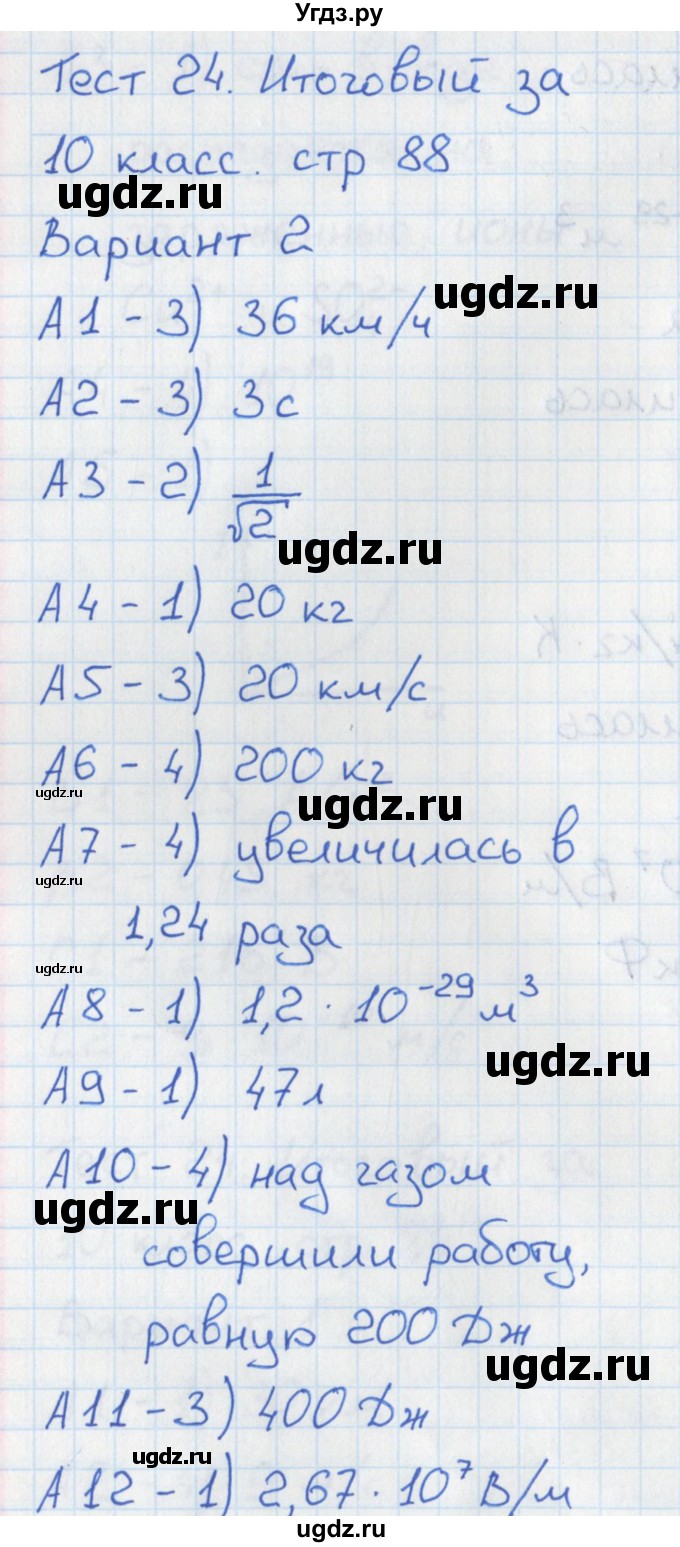 Угдз.ру
Тест 24. Итоговый за
10 класс. стр 88
ugdz.ru
Вариант 2
ugdz.ru
А1 - 3) 36 км/ч
А2 - 3) 3с
А3 - 2) 1/√2
ugdz.ru
А4 - 1) 20 кг
А5 - 3) 20 км/с
А6 - 4) 200 кг
ugdz.ru
ugdz.ru
А7 - 4) увеличилась в
ugdz.ru
1,24 раза
ugdz.ru
А8 - 1) 1,2 · 10⁻²⁹ м³
ugdz.ru
А9 - 1) 47л
А10 - 4) над газом
ugdz.ru
совершили работу,
равную 200 Дж
ugdz.ru
А11 - 3) 400 Дж
ugdz.ru
А12 - 1) 2,67 · 10⁷ В/м
ugdz.ru